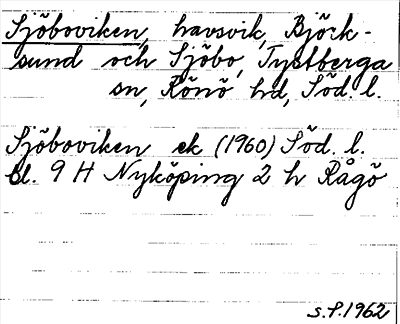 Sjöboviken, havsvik, Björk-
sund och Sjöbo, Tystberga
sn, Rönö hd, Söd. l.
Sjöboviken ek (1960) Söd. l.
bl. 9 H Nyköping 2 h Rågö
s.f. 1962